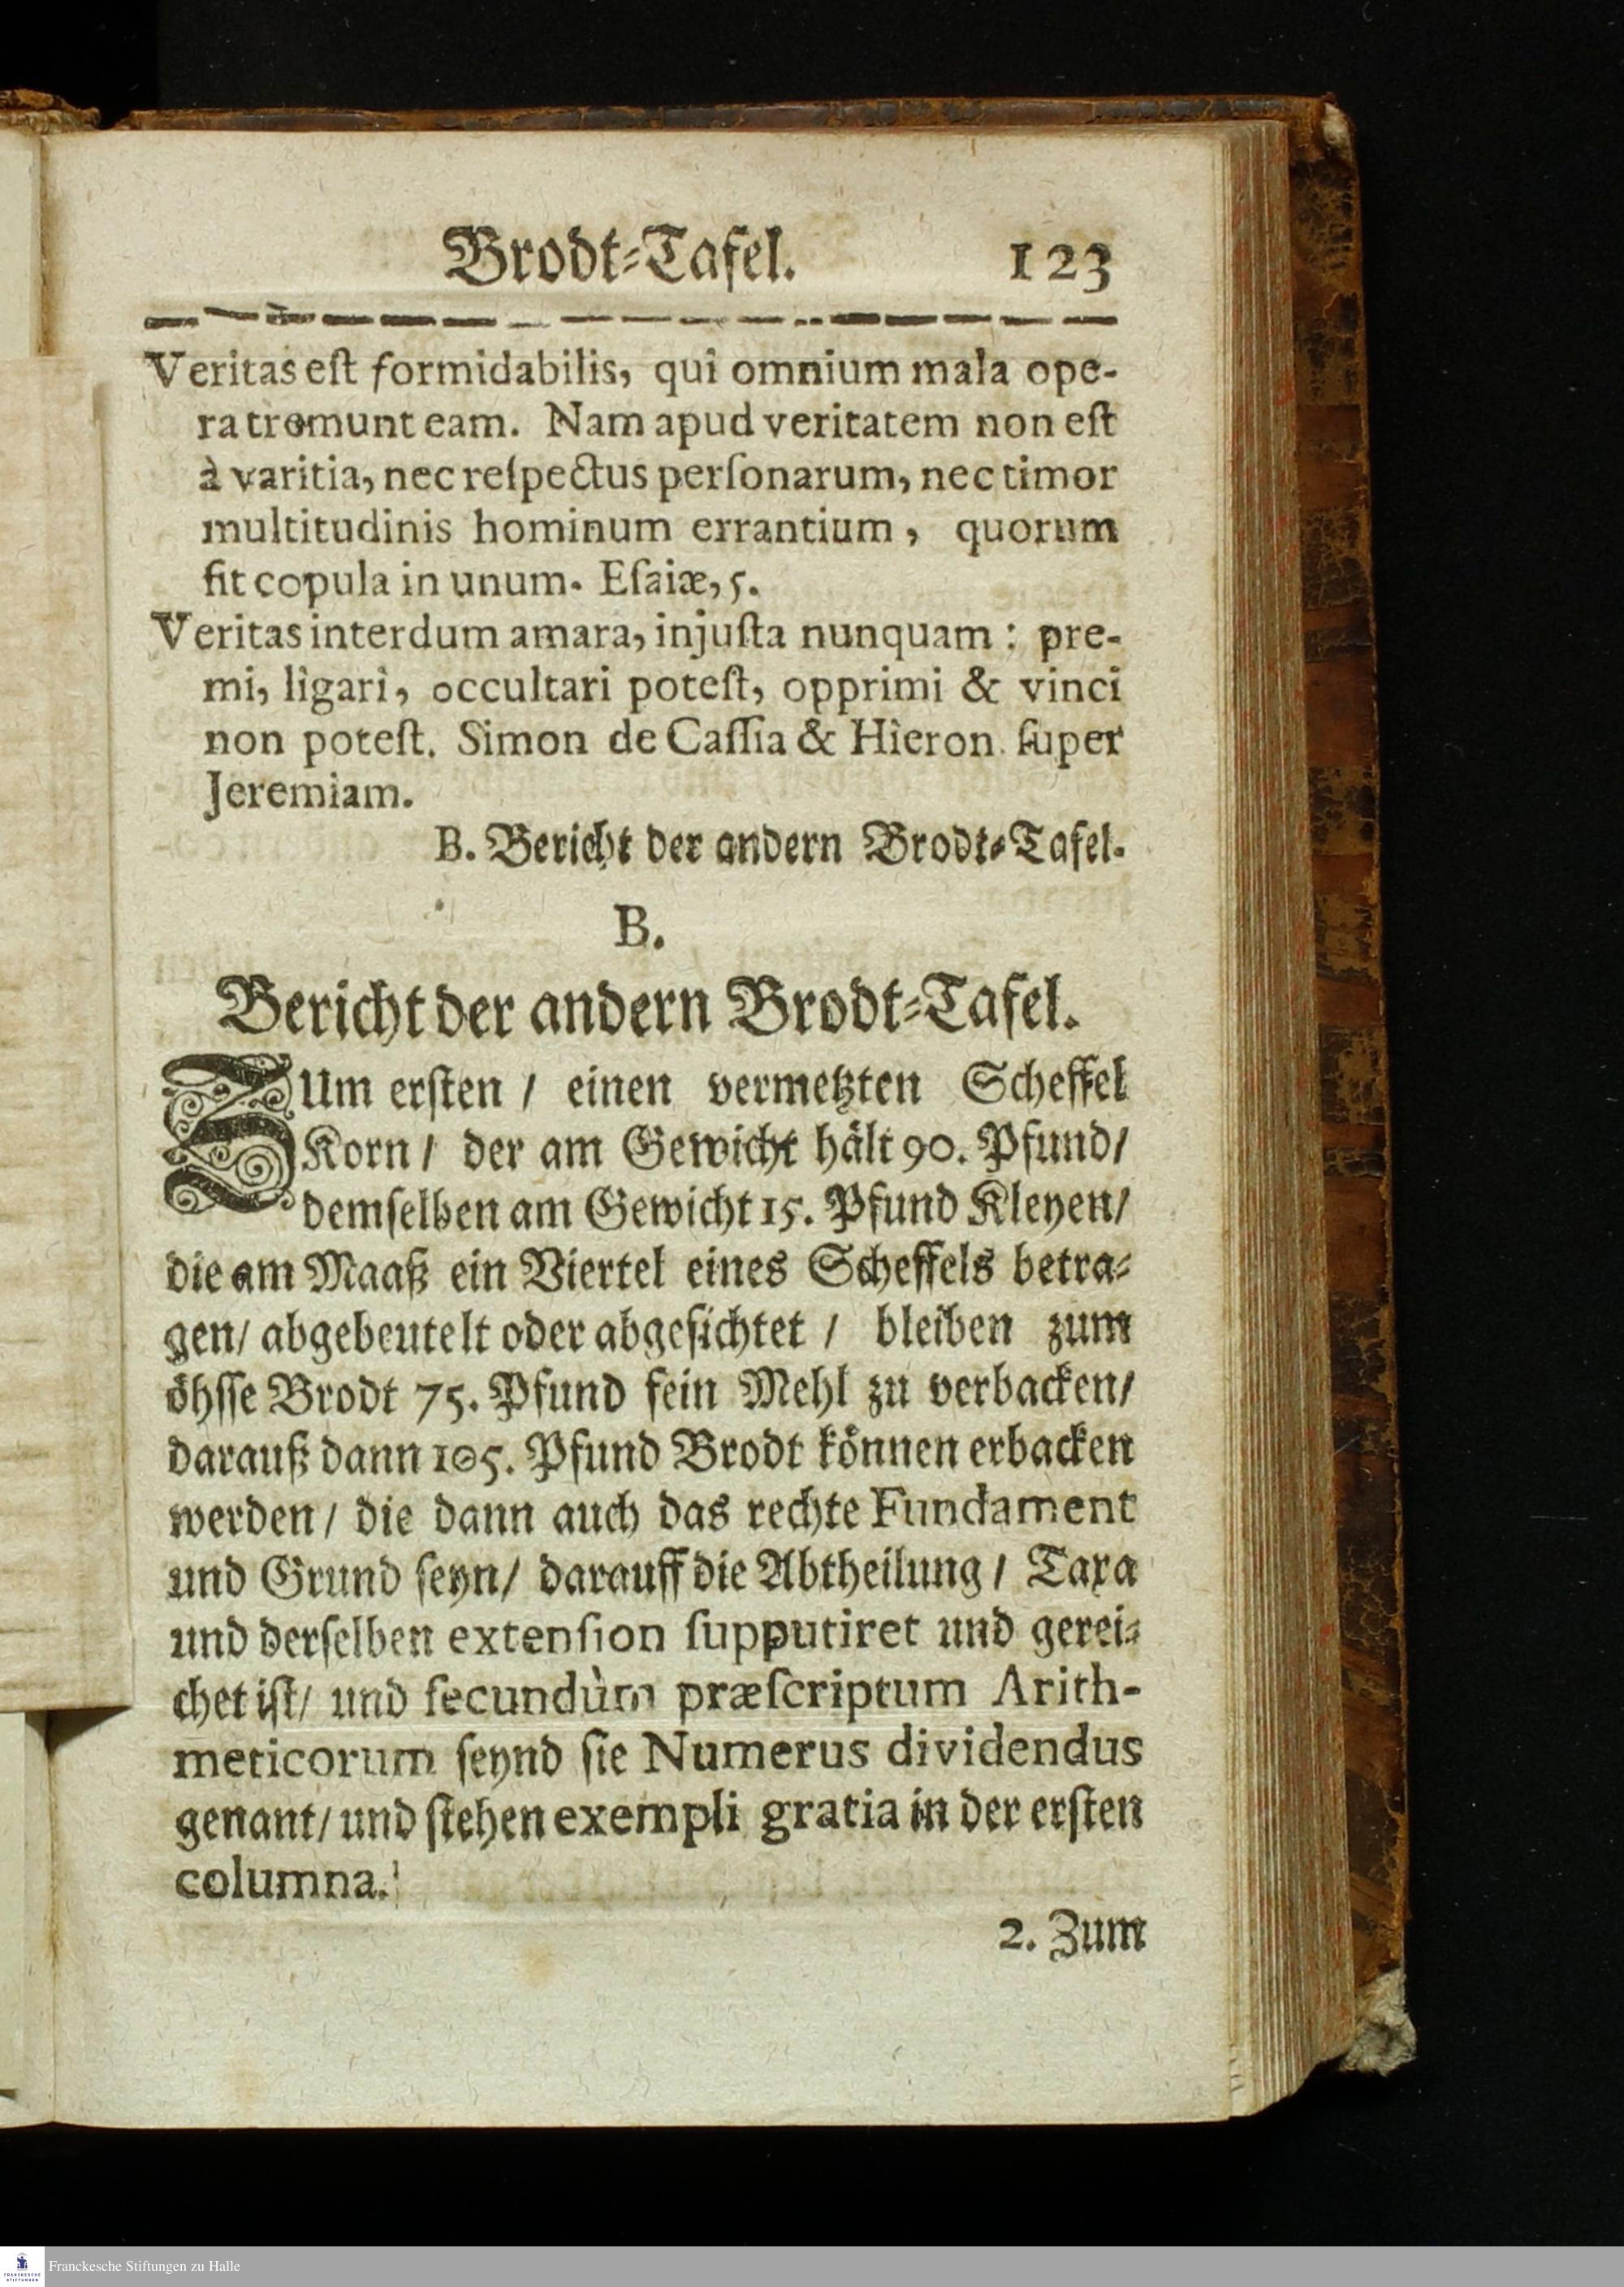 Brodt-Tafel. 123
Veritas est formidabilis, qui omnium mala ope-
ra tremunt eam. Nam apud veritatem non est
à varitia, nec reſpectus perſonarum, nec timor
multitudinis hominum errantium, quorum
fit copula in unum. Eſaiæ, 5.
Veritas interdum amara, injuſta nunquam: pre-
mi, ligari, occultari poteſt, opprimi & vinci
non poteſt. Simon de Caſſia & Hieron. ſuper
Jeremiam.
B. Bericht der andern Brodt-Tafel.
B.
Bericht der andern Brodt-Tafel.
ZUm erſten / einen vermetzten Scheffel
Korn / der am Gewicht hält 90. Pfund /
demſelben am Gewicht 15. Pfund Kleyen /
die am Maaß ein Viertel eines Scheffels betra-
gen / abgebeutelt oder abgeſichtet / bleiben zum
öhſſe Brodt 75. Pfund fein Mehl zu verbacken /
darauß dann 105. Pfund Brodt können erbacken
werden / die dann auch das rechte Fundament
und Grund ſeyn / darauff die Abtheilung / Taxa
und derſelben extenſion ſupputiret und gerei-
chet iſt / und ſecundùm præſcriptum Arith-
meticorum ſeynd ſie Numerus dividendus
genant / und ſtehen exempli gratia in der erſten
columna.
2. Zum
Franckesche Stiftungen zu Halle
FRANCKESCHE
STIFTUNGEN